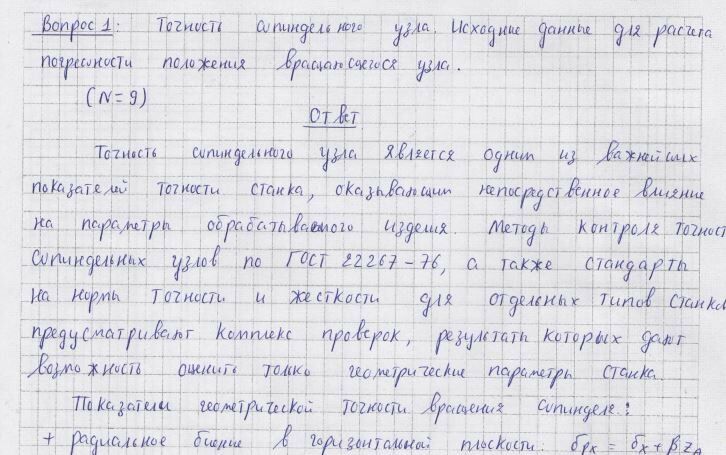 Вопрос 1: Точность шпиндельного узла. Исходные данные для расчета
погрешности положения вращающегося узла.
(N=9)
Ответ
Точность шпиндельного узла является одним из важнейших
показателей точности станка, оказывающим непосредственное влияние
на параметры обрабатываемого изделия. Методы контроля точност
шпиндельных узлов по ГОСТ 22267-76, а также стандарты
на нормы точности и жесткости для отдельных типов станко
предусматривают комплекс проверок, результаты которых дают
возможность оценить только геометрические параметры станка.
Показатели геометрической точности вращения шпинделя:
+ радиальное биение в горизонтальной плоскости: δpx = δx + βzA